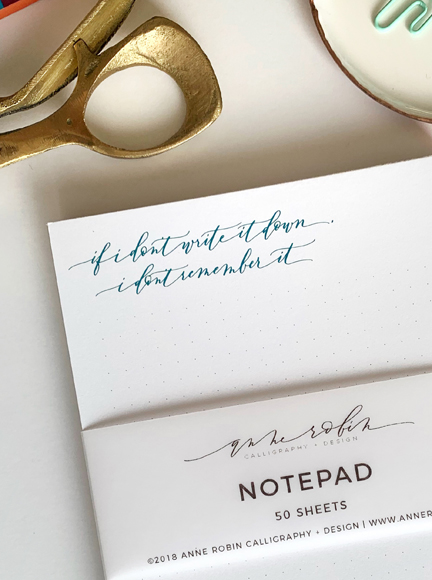 if i dont write it down.
i dont remember it
anne robin
CALLIGRAPHY + DESIGN
NOTEPAD
50 SHEETS
©2018 ANNE ROBIN CALLIGRAPHY + DESIGN | WWW.ANNER